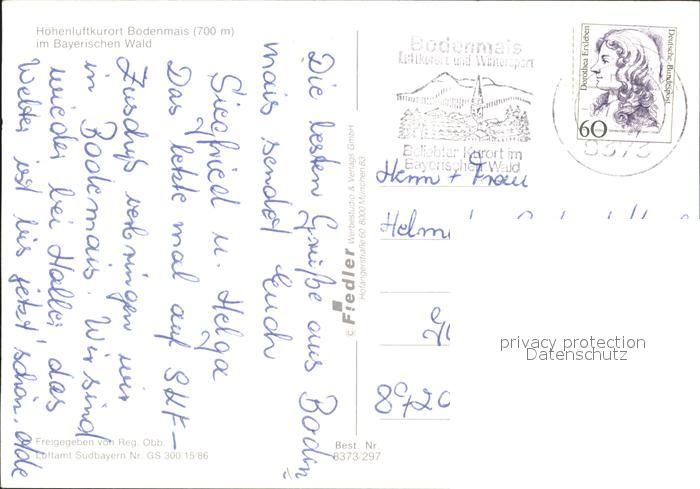 Höhenluftkurort Bodenmais (700 m)
im Bayerischen Wald
Die besten Grüße aus Boden=
mais sendet Euch
Siegfried u. Helga
Das letzte mal auf SHF-
Zuschuß verbringen wir
in Bodemais. Wir sind
wieder bei Haller, das
Wetter ist bis jetzt schön. Ade
Freigegeben von Reg. Obb.
Luftamt Südbayern Nr. GS 300.15/86
Best. Nr.
8373/297
© Fiedler Werbestudio & Verlags GmbH
Hofangerstraße 60, 8000 München 83
Bodenmais
Luftkurort und Wintersport
Beliebter Kurort im
Bayerischen Wald
Dorothea Erxleben
Deutsche Bundespost
60
8373
Herrn + Frau
Helm
8720
privacy protection
Datenschutz